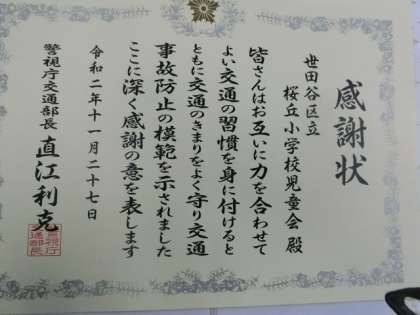 感謝状
世田谷区立
桜丘小学校児童会 殿
皆さんはお互いに力を合わせて
よい交通の習慣を身に付けると
ともに交通のきまりをよく守り交通
事故防止の模範を示されました
ここに深く感謝の意を表します
令和二年十一月二十七日
警視庁交通部長 直江利克
警視庁
交通部長